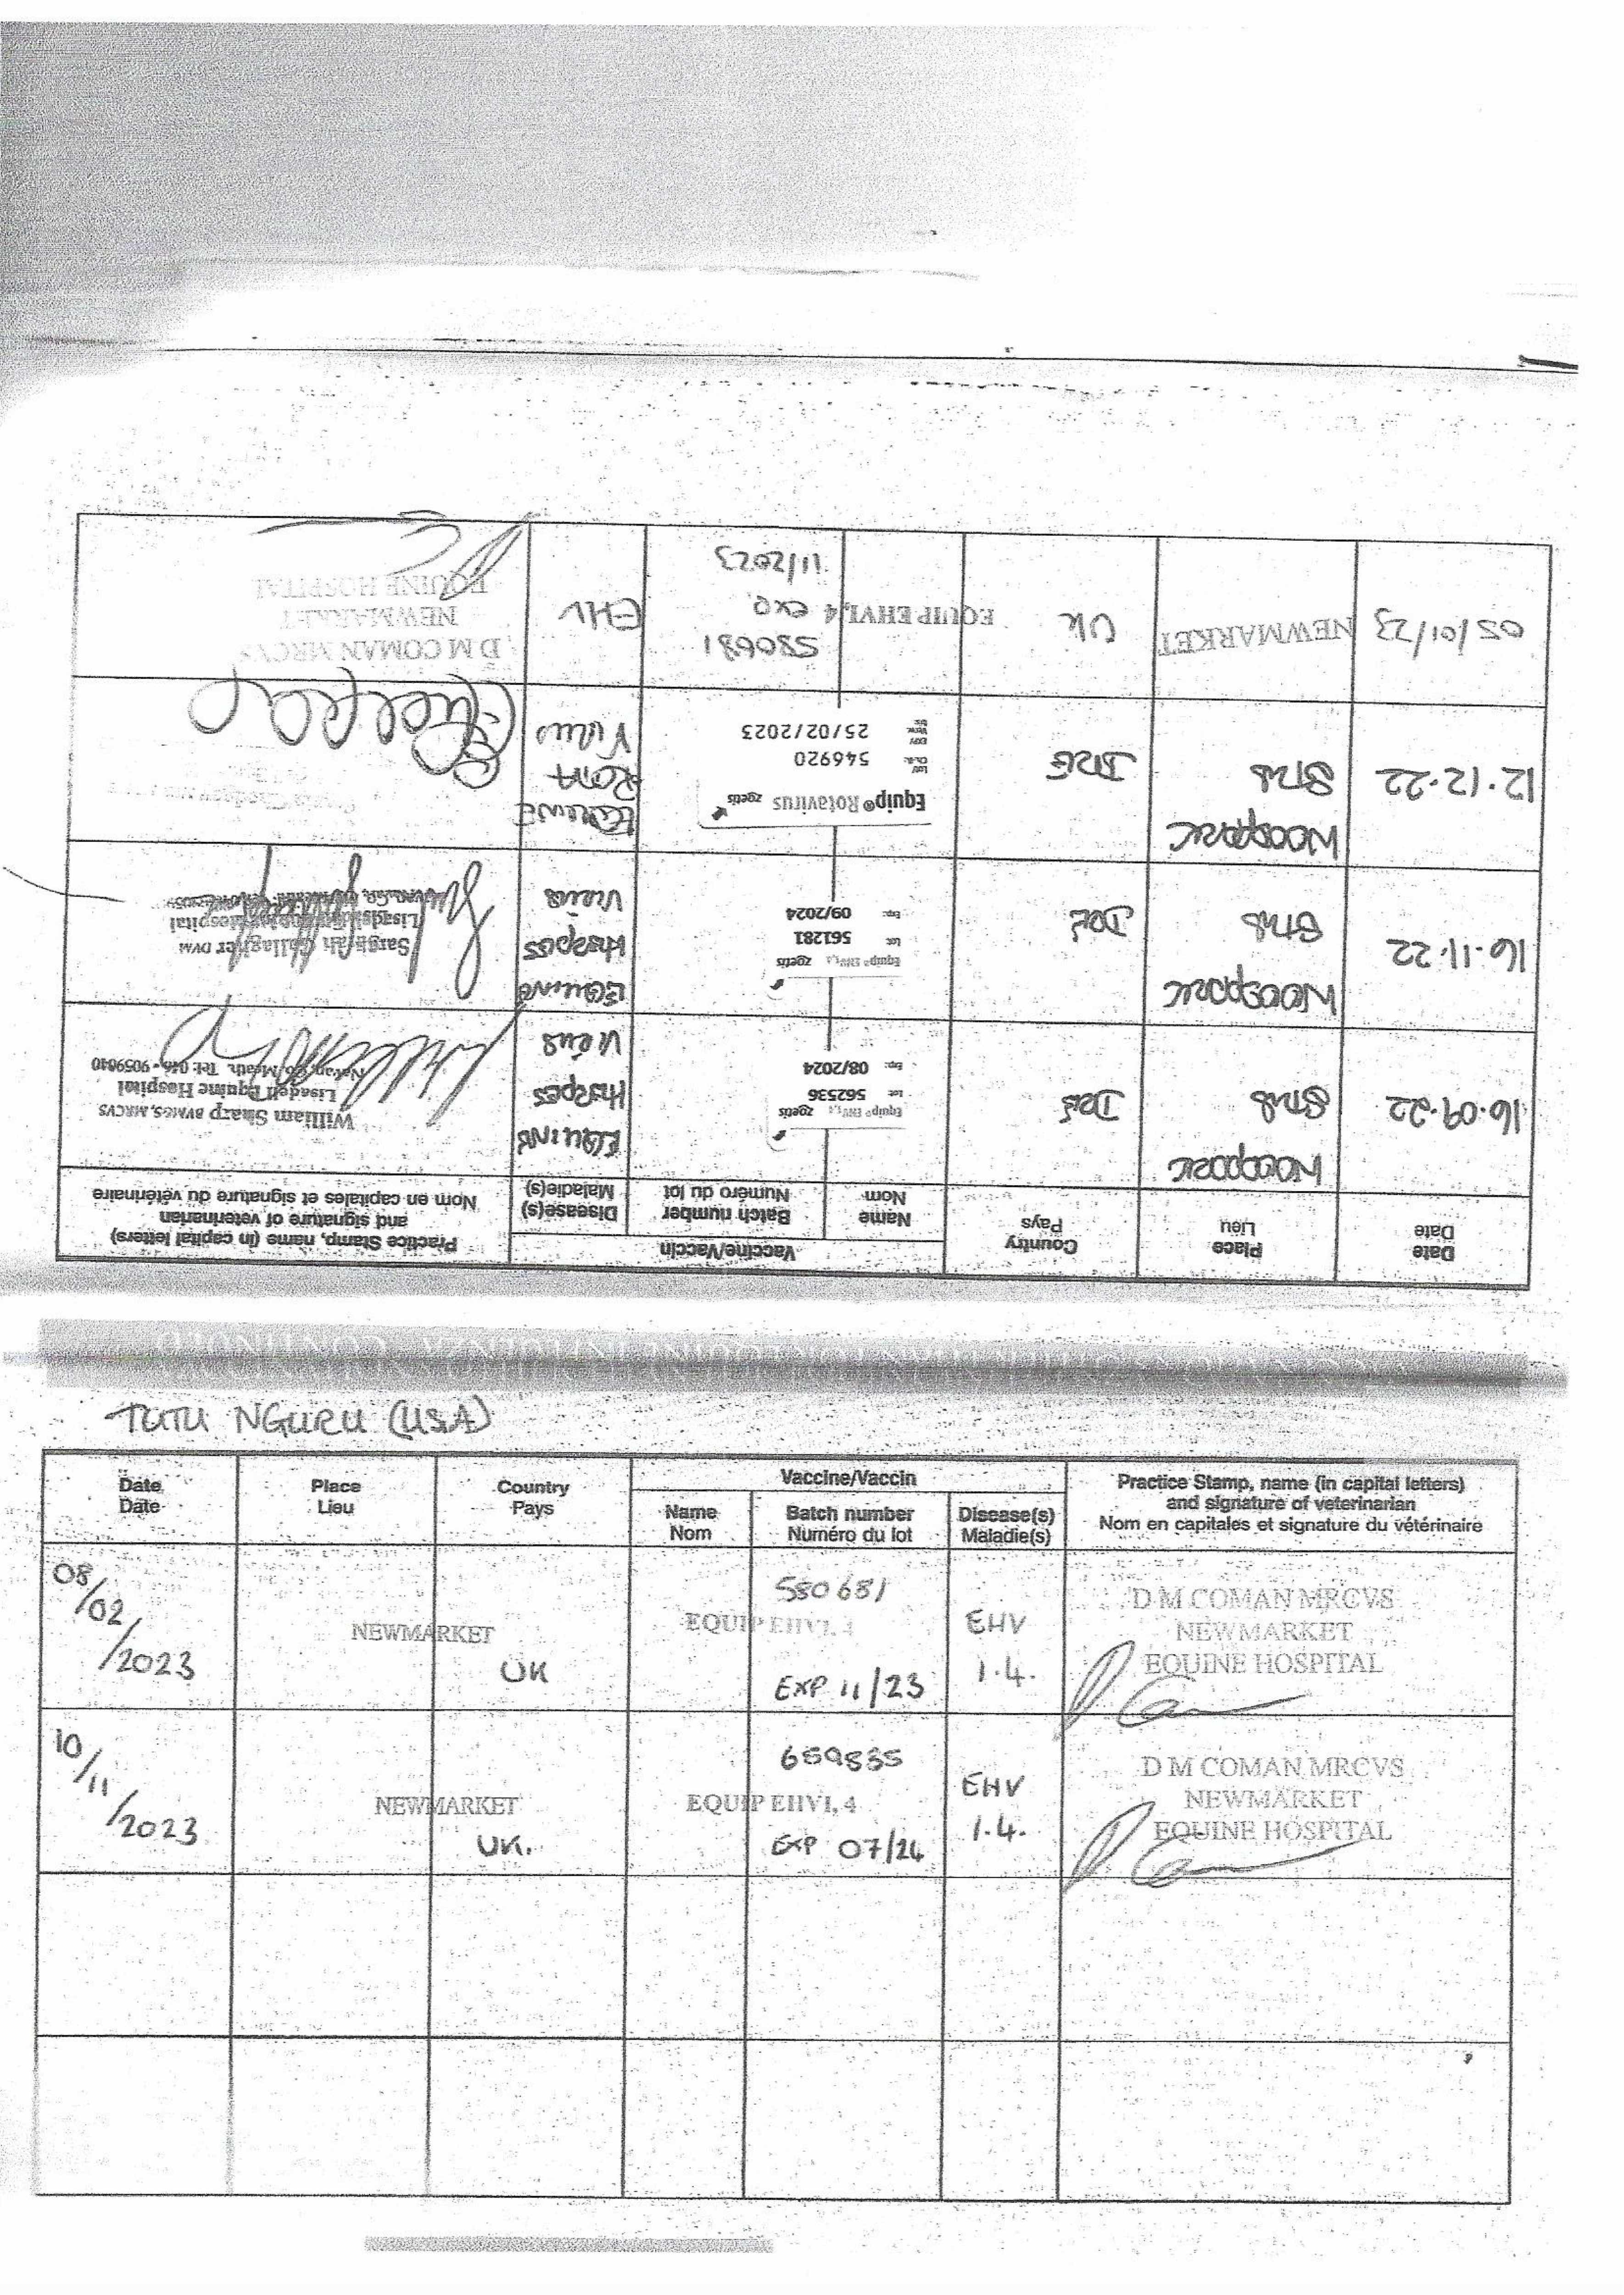 Date
Date
Place
Lieu
Country
Pays
Vaccine/Vaccin
Name
Nom
Batch number
Numéro du lot
Disease(s)
Maladie(s)
Practice Stamp, name (in capital letters)
and signature of veterinarian
Nom en capitales et signature du vétérinaire
16.09.22
WOODPARK
STUD
IRE
Equip® EHV1,4 zoetis
Lot 562536
Exp. 08/2024
EQUINE
HERPES
VIRUS
William Sharp BVM&S, MRCVS
Lisadell Equine Hospital
Navan, Co. Meath. Tel: 046 - 9059040
16.11.22
WOODPARK
STUD
IRE
Equip® EHV1,4 zoetis
Lot 561281
Exp. 09/2024
EQUINE
HERPES
VIRUS
Gallagher DVM
Lisadell Equine Hospital
12.12.22
WOODPARK
STUD
IRE
Equip® Rotavirus zoetis
546920
25/02/2023
EQUINE
ROTA
VIRUS
05/01/23
NEWMARKET
UK
EQUIP EHV1,4
580681
exp
11/2023
EHV
D M COMAN MRCVS
NEWMARKET
EQUINE HOSPITAL
TUTU NGURU (USA)
Date
Date
Place
Lieu
Country
Pays
Vaccine/Vaccin
Name
Nom
Batch number
Numéro du lot
Disease(s)
Maladie(s)
Practice Stamp, name (in capital letters)
and signature of veterinarian
Nom en capitales et signature du vétérinaire
08/02/2023
NEWMARKET
UK
EQUIP EHV1, 4
580681
EXP 11/23
EHV
1.4.
D M COMAN MRCVS
NEWMARKET
EQUINE HOSPITAL
10/11/2023
NEWMARKET
UK.
EQUIP EHV1, 4
659835
EXP 07/24
EHV
1.4.
D M COMAN MRCVS
NEWMARKET
EQUINE HOSPITAL